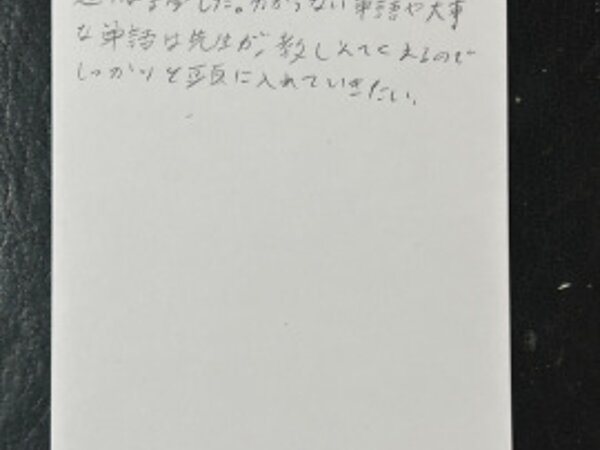 した。分からない単語や大事
な単語は先生が教しえてくれるので
しっかりと頭に入れていきたい。